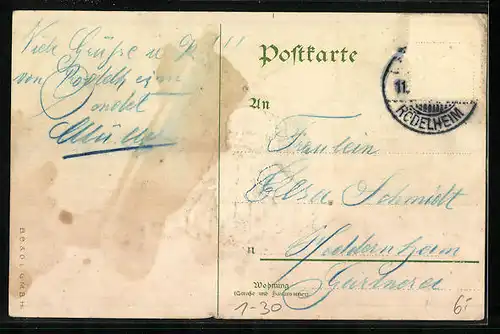 Viele Grüße u
von Rödelheim
sendet
Postkarte
An
11.
RÖDELHEIM
Fräulein
Elsa Schmidt
in
Heddernheim
Gärtnerei
Wohnung
(Straße und Hausnummer)
1-30
6,-